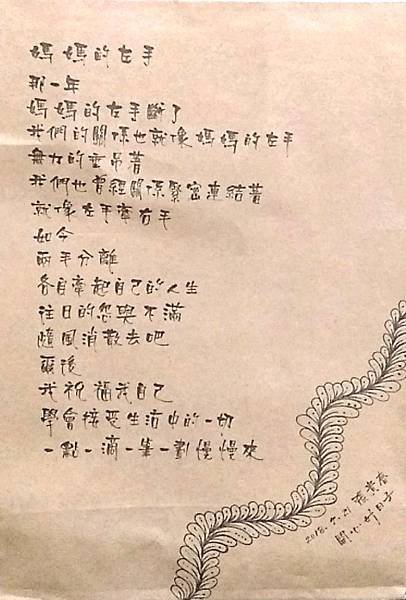 媽媽的左手
那一年
媽媽的左手斷了
我們的關係也就像媽媽的左手
無力的垂吊著
我們也曾經關係緊密連結著
就像左手牽右手
如今
兩手分離
各自牽起自己的人生
往日的怨與不滿
隨風消散去吧
爾後
我祝福我自己
學會接受生活中的一切
一點一滴一筆一劃慢慢來
2018.7.21
開心好日子